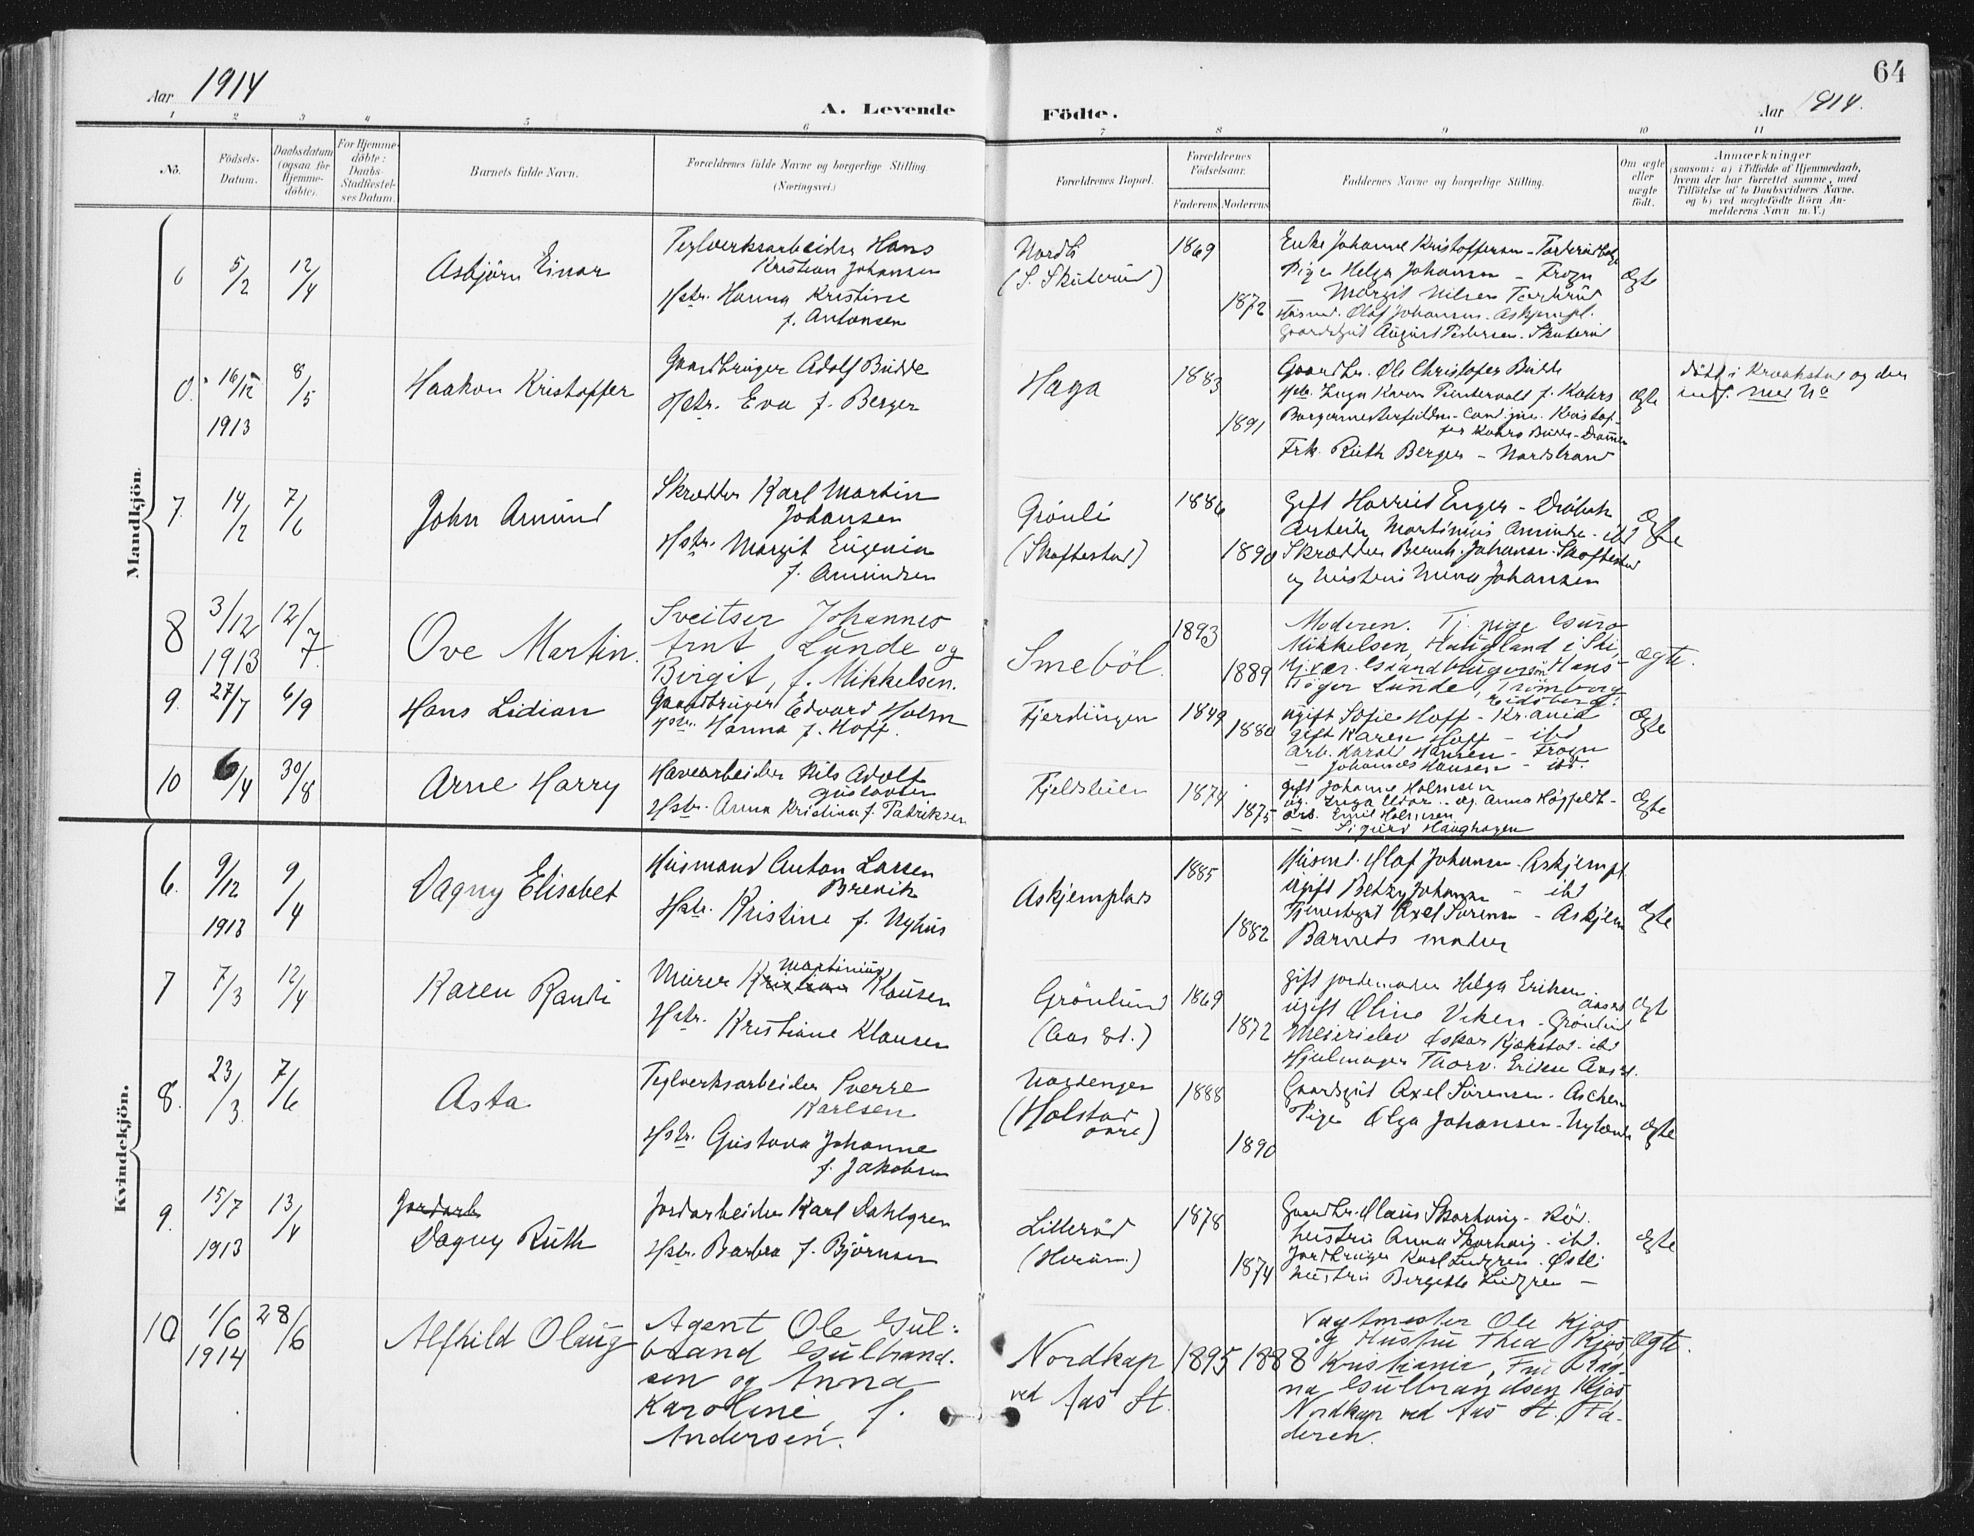 Aar 1914
A. Levende
Födte.
Aar 1914.
64
1 2 3 4 5 6 7 8 9 10 11
No.
Födsels-
Datum.
Daabsdatum
(ogsaa for
Hjemme-
döbte).
For Hjemme-
döbte:
Daabs-
Stadfæstel-
ses Datum.
Barnets fulde Navn.
Forældrenes fulde Navne og borgerlige Stilling
(Næringsvei.)
Forældrenes Bopæl.
Forældrenes
Födselsaar.
Faderens Moderens
Faddernes Navne og borgerlige Stilling.
Om ægte
eller
uægte
födt.
Anmærkninger
(saasom: a) i Tilfælde af Hjemmedaab,
hvem der har forrettet samme, med
Tilföielse af to Daabsvidners Navne.
og b) ved uægtefödte Börn An-
melderens Navn m. V.)
Mandkjön.
6 5/2 12/4
Asbjörn Einar
Teglverksarbeider Hans
Kristian Johansen
Hstr. Hanna Kristine
f. Antonsen
Nordli
(S. Skuterud)
1869
1872
Enke Johanne Kristoffersen
Pige Helga Johansen - Frogn
Margit Nilsen
Husmd. Olaf Johansen - Askjempl.
Gaardsgut August Pedersen - Skuterud
Ægte
0. 16/12 8/5
1913
Haakon Kristoffer
Gaardbruger Adolf Budde
Hstr. Eva f. Berger
Haga
1883
1891
Gaardbr. Ole Christofer Budde
Hstr. Inga Karen
Borgermesterfuldm. cand. jur. Kristof-
fer Budde - Drammen
Frk. Ruth Berger - Nordstrand
Ægte
døbt i Kraakstad og der
indf. med No
7. 14/2 7/6
John Amund
Skrædder Karl Martin
Johansen
Hstr. Margit Eugenia
f. Amundsen
Grönli
(Skoftestad)
1886
1890
Gift Harriet Enger - Dröbak
Arbeider Martinius Amunds. - ibd
Skrædder Bernh. Johansen - Skoftestad
og hustru Mina Johansen
Ægte
8 3/12 12/7
1913
Ove Martin.
Sveitser Johannes
Arnt Lunde og
Birgit, f. Mikkelsen.
Smeböl.
1893
1889
Moderen. Tj. pige Guro
Mikkelsen, Haugland i Ski,
Gaardbrugersön Hans
Lunde, Trömborg
Eidsberg.
Ægte.
9. 27/7 6/9
Hans Lidian
Gaardbruger Edvard Holm
Hstr. Hanna f. Hoff.
Fjerdingen
1849
1880
Ugift Sofie Hoff - Kr.ania
gift Karen Hoff - ibd
Arb. Harald Hansen - Frogn
- Johannes Hansen - ibd.
Ægte
10 6/4 30/8
Arne Harry
Havearbeider Nils Adolf
Gustavsen
Hstr. Anna Kristina f. Patriksen
Fjeldstuen
1874
1875
gift Johanne Holmsen
ug. Inga - ug. Anna Högfeldt -
arb. Emil Holmsen
- Sigurd Haughagen
Ægte
Kvindekjön.
6. 9/12 9/4
1913
Dagny Elisabet
Husmand Anton Larsen
Brevik
Hstr. Kristine f. Nyhus
Askjemplads
1885
1882
Husmd. Olaf Johansen - Askjempl
Ugift Betzy Johansen - ibd
Tjenestegut Axel Sörensen - Askjem
Barnets moder
Ægte
7 7/3 12/4
Karen Randi
Murer Kristian Martinius Klausen
Hstr. Kristiane Klausen
Grönlund
(Aas St.)
1869
1872
Gift jordemoder Helga Eriksen
Aas st
Ugift Öline Viken - Grönlund
Meierielev Oskar Kjøkstad - ibd
Hjulmager Thorv. Eriksen Aas st.
Ægte
8. 23/3. 7/6
Asta
Teglverksarbeider Sverre
Karlsen
Hstr. Gustava Johanne
f. Jakobsen
Nordengen
(Holstad
övre)
1888
1890
Gaardsgut Axel Sörensen - Aschem
Pige Olga Johansen - Nylænde
Ægte
9. 15/7 13/4
1913
Jordarb
Dagny Ruth
Jordarbeider Karl Dahlgren
Hstr. Barbra f. Björnsen
Lilleröd
(Heröm.)
1878
1874
Gaardbr. Claus Skorhaug - Röd.
hustru Anna Skorhaug - ibd.
Jordbruger Karl Lindgren - Östli
hustru Bergitte Lindgren -
Ægte
10 1/6 28/6
1914
Alfhild Olaug
Agent Ole Gul-
brand Gulbrand-
sen og Anna
Karoline, f.
Andersen.
Nordkap
ved Aas St.
1895 1888
Vagtmester Ole Kjos
og Hustru Thea Kjos,
Kristiania, Fru Rag-
na Gulbrandsen Kjos
Nordkap ved Aas St. Fa-
deren.
Ægte.